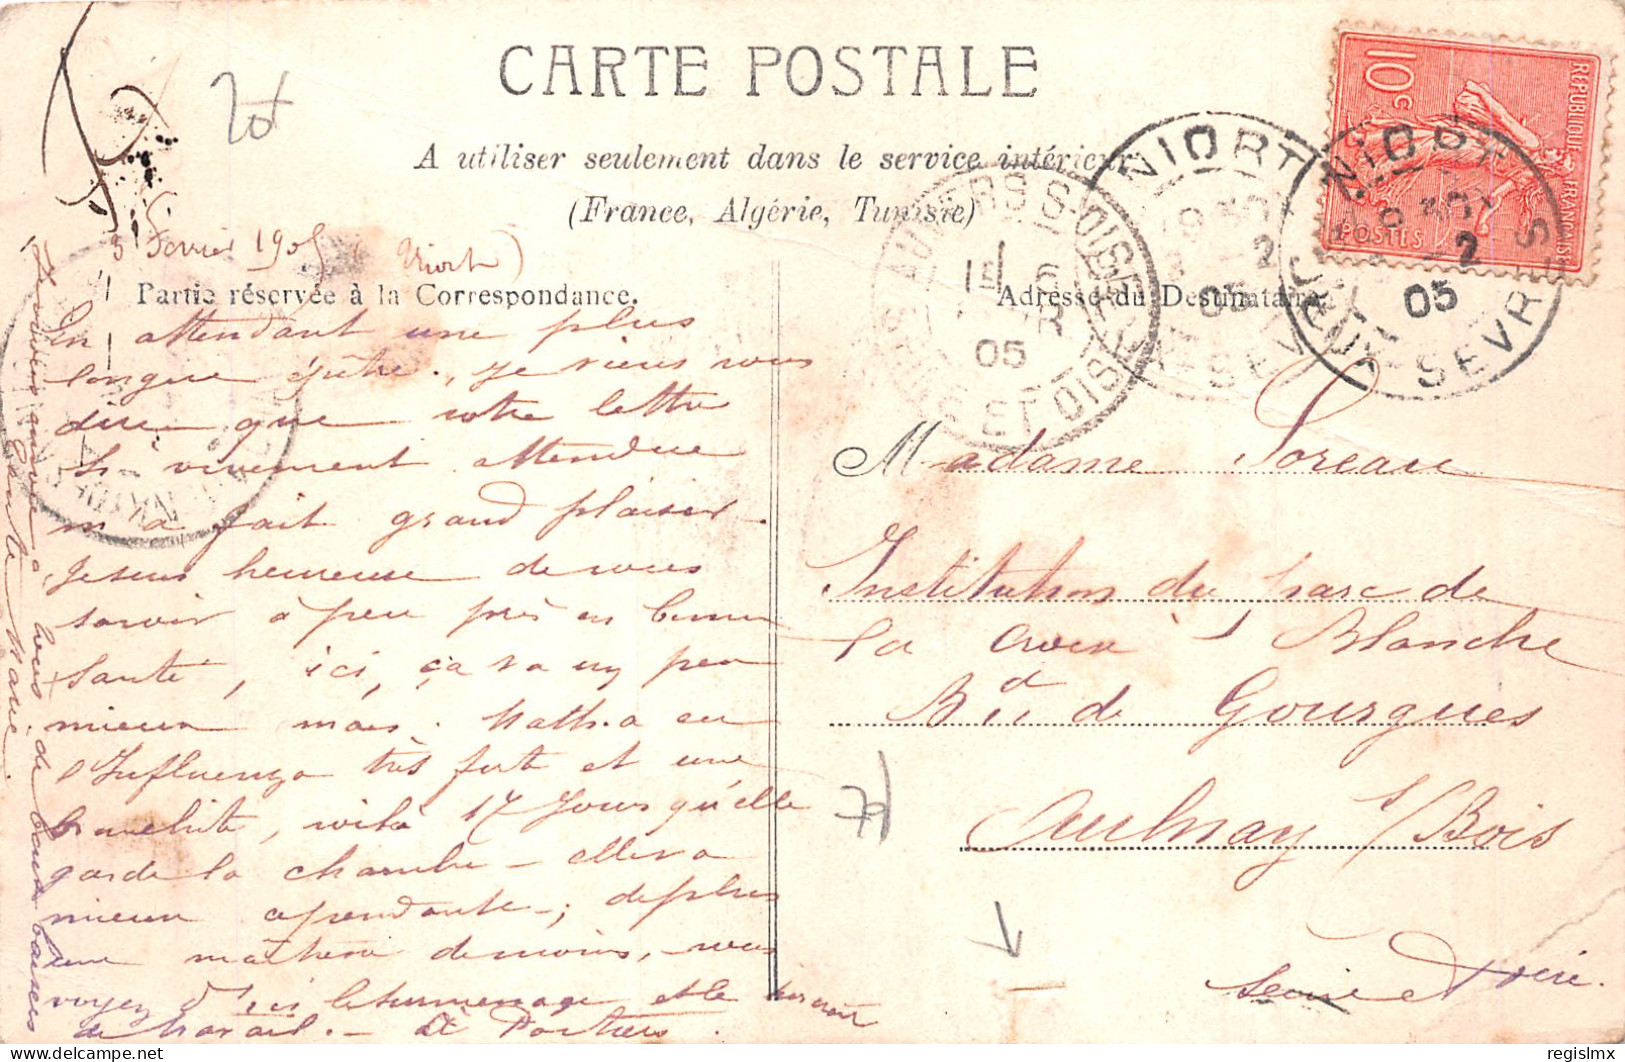 CARTE POSTALE
A utiliser seulement dans le service intérieur
(France, Algérie, Tunisie)
5 Février 1905 (Niort)
Partie réservée à la Correspondance.
En attendant une plus
longue épître, je viens vous
dire que votre lettre
si vivement attendue
m'a fait grand plaisir.
Je suis heureuse de vous
savoir à peu près en bonne
santé, ici, ça va un peu
mieux mais. Math. a eu
l'Influenza très forte et une
bronchite, voilà 17 jours qu'elle
garde la chambre – elle va
mieux cependant; de plus
une de moins, vous
voyez d'ici le surmenage et le surcroît
de travail. – Poitiers.
vous de bons baisers
Tante Marie.
Adresse du Destinataire
REPUBLIQUE FRANÇAISE
10c
POSTES
NIORT
DEUX-SEVRES
9 30
5 -2
05
NIORT
9 30
-2
05
SEVRES
15 6
05
ET OISE
Madame Soreau
Institution du parc de
la Croix Blanche
Bd de Gourgues
Aulnay s/Bois
Seine et Oise.
20f
regislmx
delcampe.net